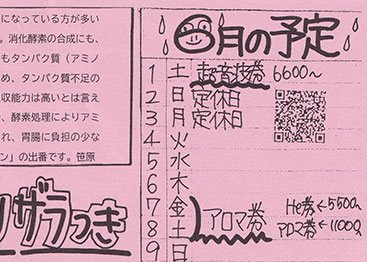 になっている方が多い
。消化酵素の合成にも、
もタンパク質（アミノ
め、タンパク質不足の
収能力は高いとは言え
、酵素処理によりアミ
れ、胃腸に負担の少な
ン」の出番です。笹原
ザラつき
6月の予定
1 土 超音波券 6600〜
2 日 定休日
3 月 定休日
4 火
5 水
6 木
7 金
8 土 アロマ券
9 日
He券←5500
アロマ券←11000